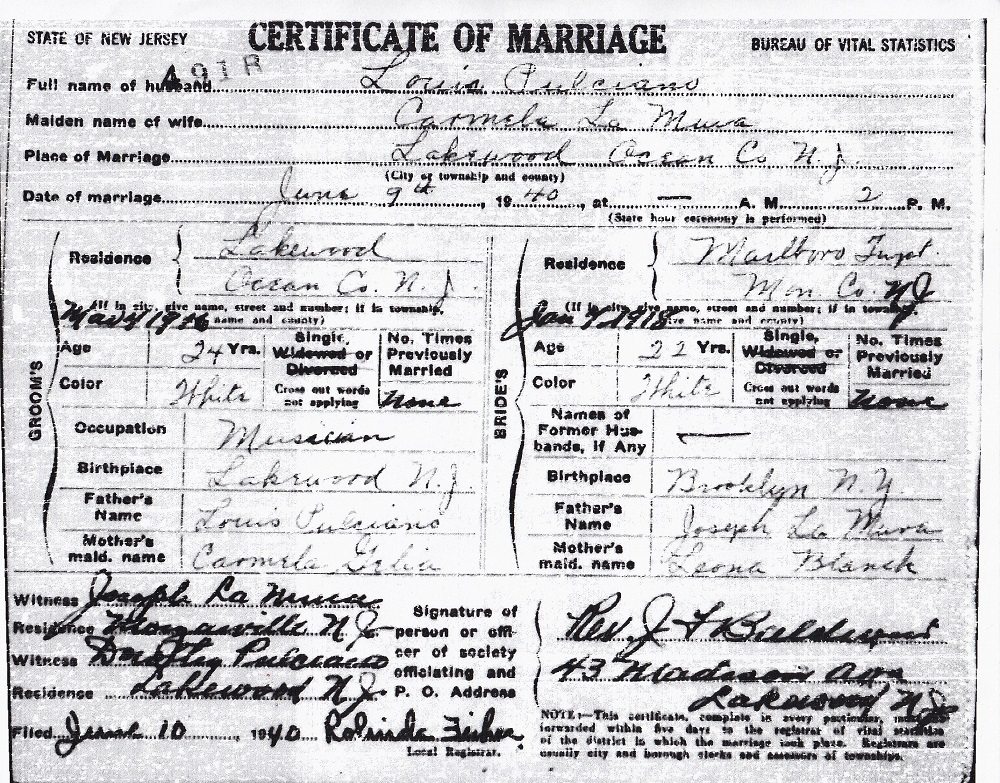 STATE OF NEW JERSEY CERTIFICATE OF MARRIAGE BUREAU OF VITAL STATISTICS
491R
Full name of husband Louis Pulciano
Maiden name of wife Carmela La Mura
Place of Marriage Lakewood Ocean Co N. J.
(City or township and county)
Date of marriage June 9th, 1940, at — A. M. 2 P. M.
(State hour ceremony is performed)
GROOM'S
Residence Lakewood
Ocean Co. N. J.
(If in city, give name, street and number; if in township,
name and county)
1916
Age 24 Yrs. Single, Widowed or Divorced No. Times Previously Married
Color White Cross out words not applying None
Occupation Musician
Birthplace Lakewood N. J.
Father's Name Louis Pulciano
Mother's maid. name Carmela
BRIDE'S
Residence Marlboro Twpt.
Mon Co. NJ
(If in city, give name, street and number; if in township,
give name and county)
Jan 7, 1918
Age 22 Yrs. Single, Widowed or Divorced No. Times Previously Married
Color White Cross out words not applying None
Names of Former Husbands, if Any —
Birthplace Brooklyn N. Y.
Father's Name Joseph La Mura
Mother's maid. name Leona Blanck
Witness Joseph La Mura
Residence Morganville N J
Witness Dorothy Pulciano
Residence Lakewood N J.
Signature of person or officer of society officiating and P. O. Address
Rev. J F Baldwin
43 Madison Ave
Lakewood N J
Filed June 10, 1940. Fisher
Local Registrar.
NOTE:—This certificate, complete in every particular, must be
forwarded within five days to the registrar of vital statistics
of the district in which the marriage took place. Registrars are
usually city and borough clerks and assessors of townships.